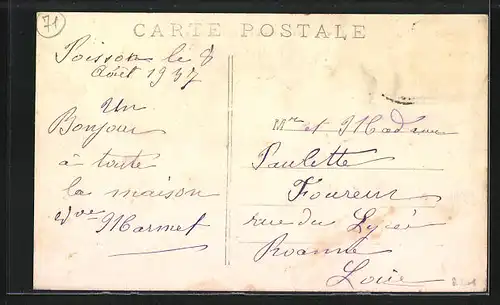 71
CARTE POSTALE
Poisson le 8
Août 1937
Un
Bonjour
à toute
la maison
Vve Marmet
Mr et Madame
Paulette
Foureur
rue du Lycée
Roanne
Loire